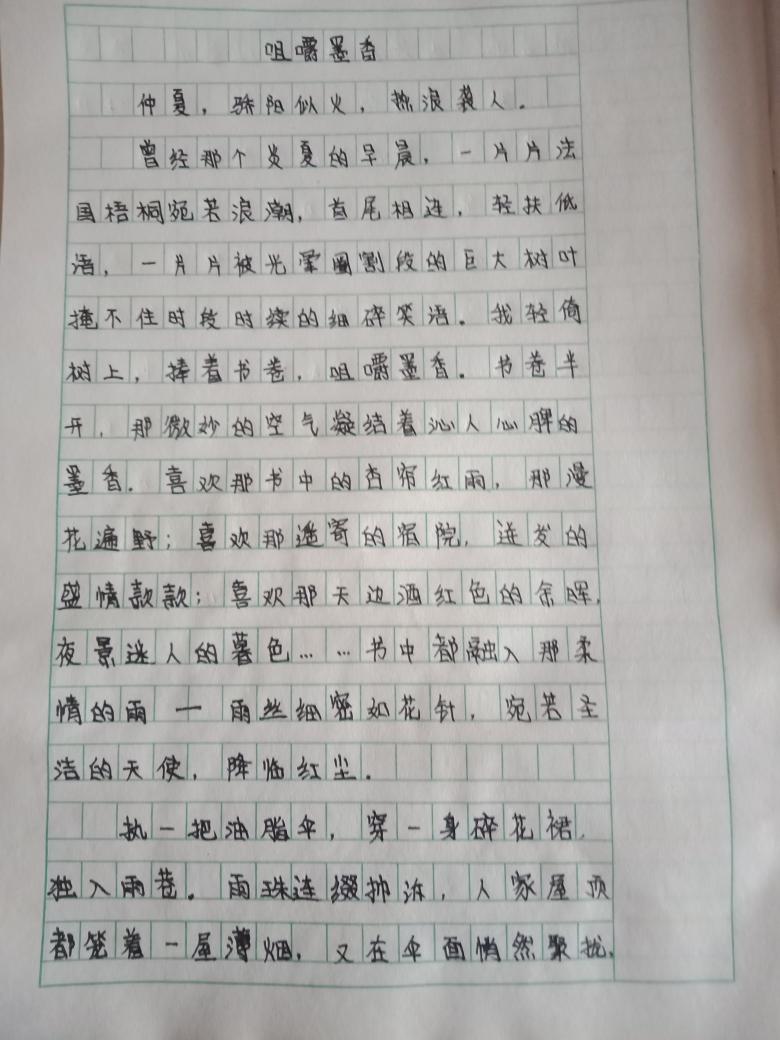 咀嚼墨香
仲夏，骄阳似火，热浪袭人。
曾经那个炎夏的早晨，一片片法
国梧桐宛若浪潮，首尾相连，轻扶低
语，一片片被光晕圈割段的巨大树叶
掩不住时段时续的细碎笑语。我轻倚
树上，捧着书卷，咀嚼墨香。书卷半
开，那微妙的空气凝结着沁人心脾的
墨香。喜欢那书中的杏帘红雨，那漫
花遍野；喜欢那遥寄的宿院，迸发的
盛情款款；喜欢那天边酒红色的余晖，
夜景迷人的暮色……书中都融入那柔
情的雨——雨丝细密如花针，宛若圣
洁的天使，降临红尘。
执一把油脂伞，穿一身碎花裙，
独入雨巷。雨珠连缀抻诉，人家屋顶
都笼着一层薄烟，又在伞面悄然聚拢，